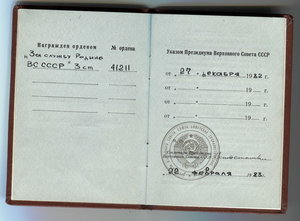 Награжден орденом № ордена
„За службу Родине
ВС СССР" 3 ст 41211
Указом Президиума Верховного Совета СССР
от 27 декабря 1982 г.
от 19 г.
от 19 г.
от 19 г.
Верховного Совета СССР
февраля 1983 г.